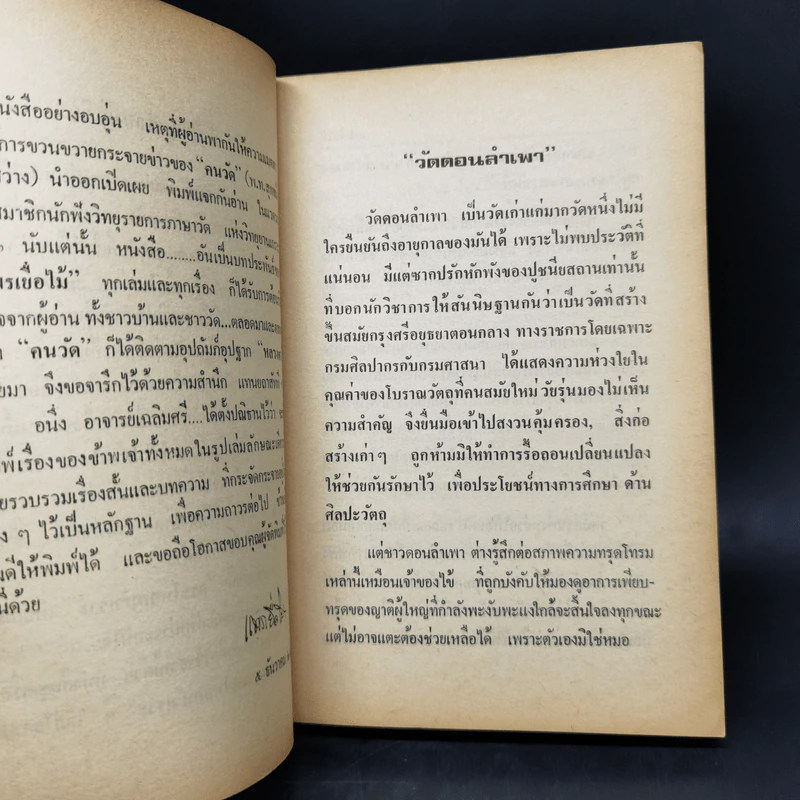 นังสืออย่างอบอุ่น เหตุที่ผู้อ่านพากันให้ความ
การขวนขวายกระจายข่าวของ “คนวัด” (พ.ท.
สว่าง) นำออกเปิดเผย พิมพ์แจกกันอ่าน
สมาชิกนักฟังวิทยุรายการภาษาวัด แห่งวิทยุ
นับแต่นั้น หนังสือ........อันเป็นบทประพันธ์
รเยื่อไม้” ทุกเล่มและทุกเรื่อง ก็ได้รับการ
จจากผู้อ่าน ทั้งชาวบ้านและชาววัด...ตลอดมา
“คนวัด” ก็ได้ติดตามอุปถัมภ์อุปฐาก
ยมา จึงขอจารึกไว้ด้วยความสำนึก
อนึ่ง อาจารย์เฉลิมศรี....ได้ตั้งปณิธานไว้ว่า
พ์เรื่องของข้าพเจ้าทั้งหมดในรูปเล่มลักษณะ
ยรวบรวมเรื่องสั้นและบทความ ที่กระจัดกระจาย
ง ๆ ไว้เป็นหลักฐาน เพื่อความถาวรต่อไป
นดีให้พิมพ์ได้ และขอถือโอกาสขอบคุณ
นี้ด้วย
๕ ธันวาคม
“วัดดอนลำเพา”
วัดดอนลำเพา เป็นวัดเก่าแก่มากวัดหนึ่งไม่มี
ใครยืนยันถึงอายุกาลของมันได้ เพราะไม่พบประวัติที่
แน่นอน มีแต่ซากปรักหักพังของปูชนียสถานเท่านั้น
ที่บอกนักวิชาการให้สันนิษฐานกันว่าเป็นวัดที่สร้าง
ขึ้นสมัยกรุงศรีอยุธยาตอนกลาง ทางราชการโดยเฉพาะ
กรมศิลปากรกับกรมศาสนา ได้แสดงความห่วงใยใน
คุณค่าของโบราณวัตถุที่คนสมัยใหม่ วัยรุ่นมองไม่เห็น
ความสำคัญ จึงยื่นมือเข้าไปสงวนคุ้มครอง, สิ่งก่อ
สร้างเก่า ๆ ถูกห้ามมิให้ทำการรื้อถอนเปลี่ยนแปลง
ให้ช่วยกันรักษาไว้ เพื่อประโยชน์ทางการศึกษา ด้าน
ศิลปะวัตถุ
แต่ชาวดอนลำเพา ต่างรู้สึกต่อสภาพความทรุดโทรม
เหล่านี้เหมือนเจ้าของไข้ ที่ถูกบังคับให้มองดูอาการเพียบ-
ทรุดของญาติผู้ใหญ่ที่กำลังพะงับพะแงใกล้จะสิ้นใจลงทุกขณะ
แต่ไม่อาจแตะต้องช่วยเหลือได้ เพราะตัวเองมิใช่หมอ